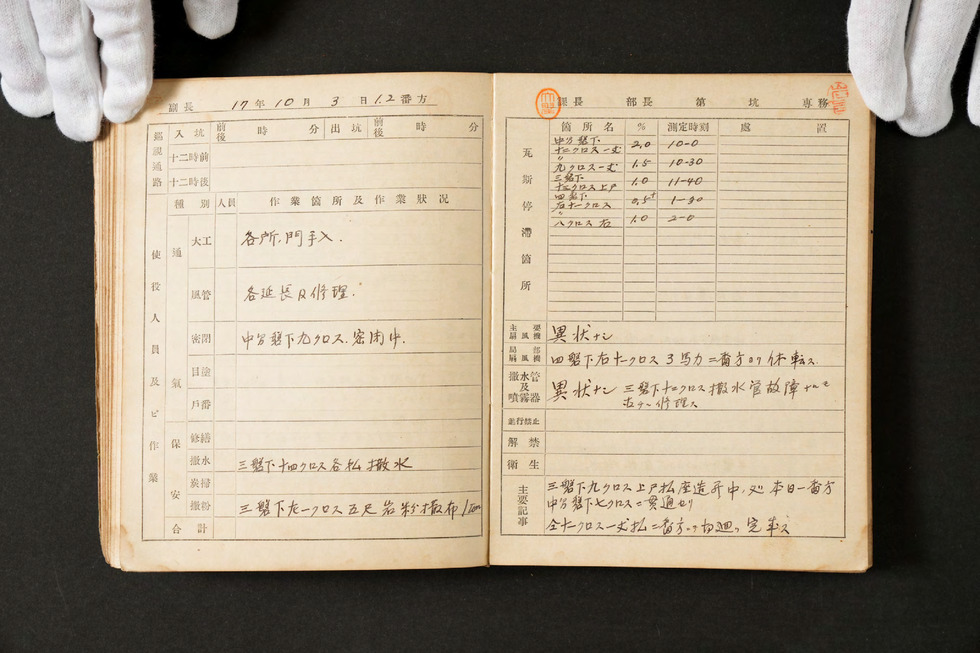 副長 17年10月3日1.2番方
鑑視通路 入坑 前後 時 分 出坑 前後 時 分
十二時前
十二時後
使役人員及ビ作業
種別 人員 作業箇所及作業状况
通氣
大工 各所、門手入.
風管 各延長及修理.
密閉 中部盤下九クロス、密閉中.
目塗
戸番
保安
修繕
撒水 三盤下十四クロス各払撒水
炭掃
撒粉 三盤下左一クロス五尺岩粉撒布
合計
課長 部長 第 坑 専務
瓦斯停滞箇所
箇所名 % 測定時刻 處置
中部盤下
十二クロス 2.0 10-0
〃
九クロス 1.5 10-30
三盤下
十二クロス上戸 1.0 11-40
四盤下
右十一クロス 0.5 1-30
〃
八クロス右 1.0 2-0
主要扇風機 異状ナシ
局部扇風機 四盤下右十一クロス3馬力二番方ヨリ休転ス
撒水管及噴霧器 異状ナシ 三盤下十二クロス撒水管故障ナルモ
修理ス
並行禁止
解禁
衛生
主要記事
三盤下九クロス上戸払座造昇中、処本日一番方
中部盤下七クロスニ貫通セリ
二番方 完了ス